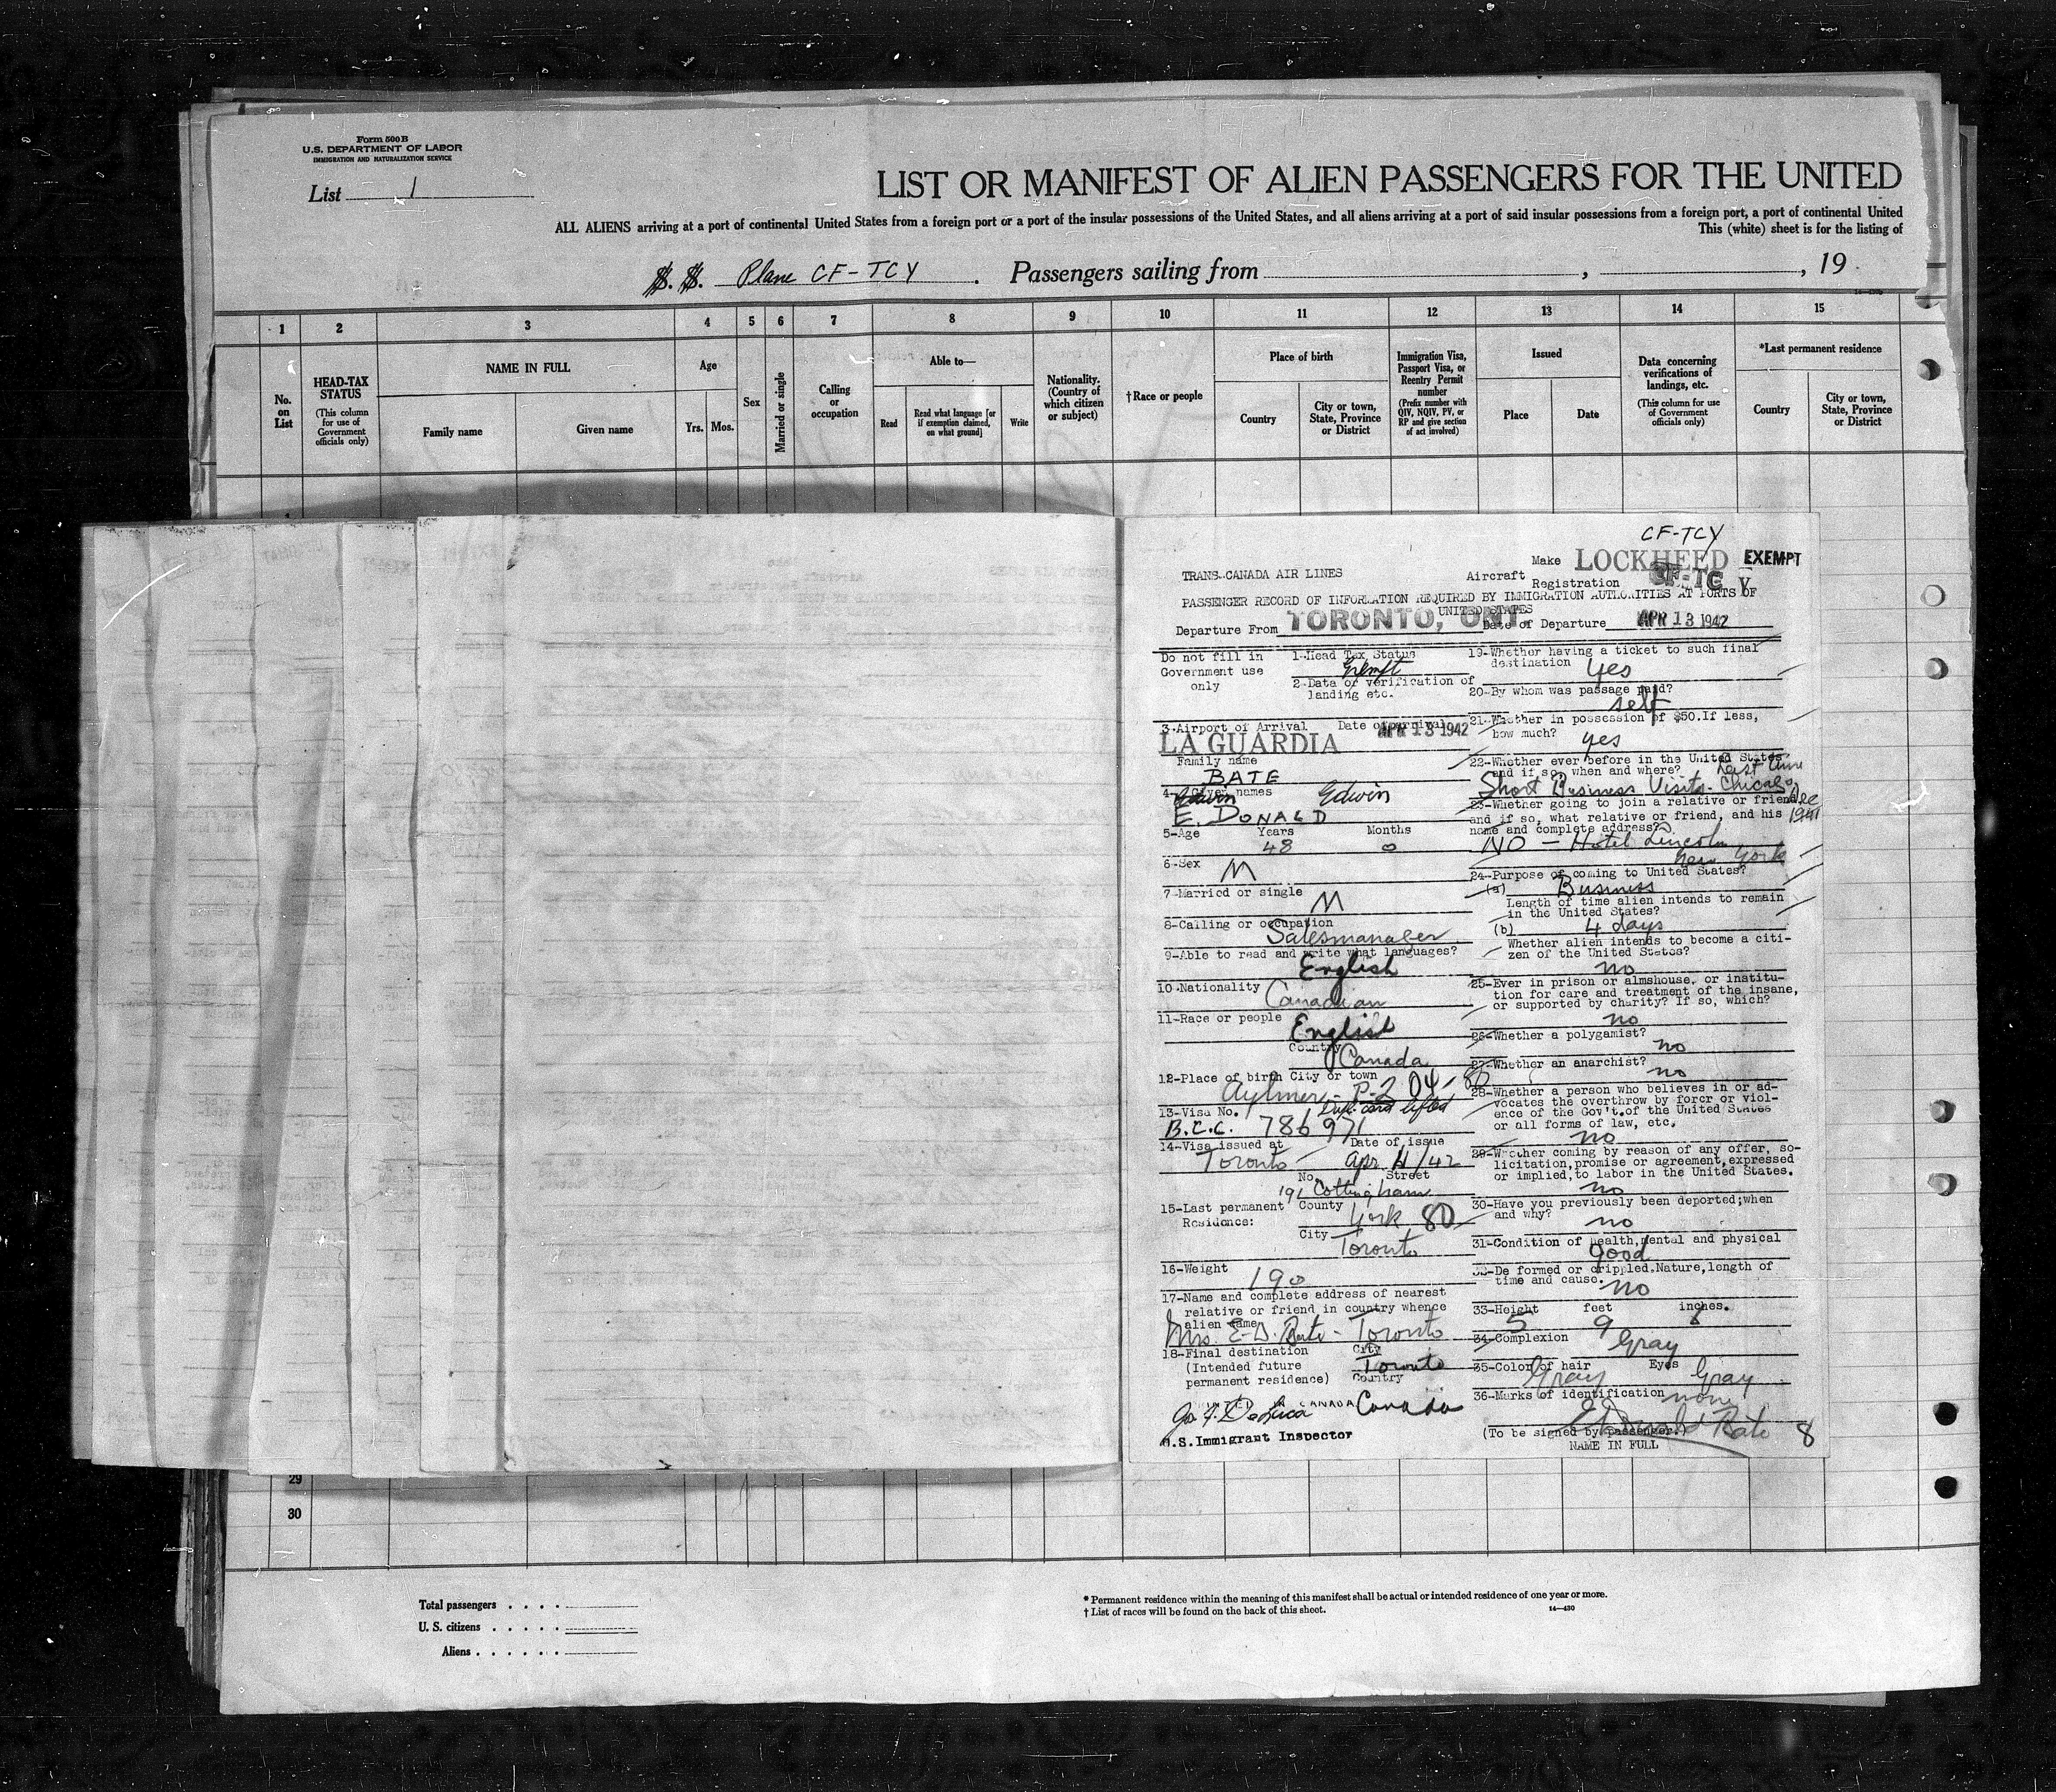 Form 500B
U.S. DEPARTMENT OF LABOR
IMMIGRATION AND NATURALIZATION SERVICE
List 1
LIST OR MANIFEST OF ALIEN PASSENGERS FOR THE UNITED
ALL ALIENS arriving at a port of continental United States from a foreign port or a port of the insular possessions of the United States, and all aliens arriving at a port of said insular possessions from a foreign port, a port of continental United
This (white) sheet is for the listing of
S. S. Plane CF-TCY. Passengers sailing from , , 19
1 2 3 4 5 6 7 8 9 10 11 12 13 14 15
No. on List
HEAD-TAX STATUS
(This column for use of Government officials only)
NAME IN FULL
Family name
Given name
Age
Yrs. Mos.
Sex
Married or single
Calling or occupation
Able to—
Read
Read what language [or if exemption claimed, on what ground]
Write
Nationality. (Country of which citizen or subject)
†Race or people
Place of birth
Country
City or town, State, Province or District
Immigration Visa, Passport Visa, or Reentry Permit number
(Prefix number with QIV, NQIV, PV, or RP and give section of act involved)
Issued
Place
Date
Data concerning verifications of landings, etc.
(This column for use of Government officials only)
*Last permanent residence
Country
City or town, State, Province or District
CF-TCY
Make LOCKHEED EXEMPT
TRANS-CANADA AIR LINES
Aircraft Registration CF-TC Y
PASSENGER RECORD OF INFORMATION REQUIRED BY IMMIGRATION AUTHORITIES AT PORTS OF
UNITED STATES
Departure From TORONTO, ONT. Date of Departure APR 13 1942
Do not fill in
Government use
only
1-Head Tax Status
Exempt
2-Data of verification of
landing etc.
3-Airport of Arrival Date of arrival APR 13 1942
LA GUARDIA
Family name
BATE
4-Given names
Edwin Edwin
E. DONALD
5-Age Years Months
48 0
6-Sex
M
7-Married or single
M
8-Calling or occupation
Salesmanager
9-Able to read and write what languages?
English
10-Nationality
Canadian
11-Race or people
English
Country
Canada
12-Place of birth City or town
Aylmer - P-2 04-80
13-Visa No. Dup. card lifted
B.C.C. 786971
14-Visa issued at Date of issue
Toronto Apr 11/42
No. Street
191 Cottingham
15-Last permanent County
Residence: York 80
City
Toronto
16-Weight
190
17-Name and complete address of nearest
relative or friend in country whence
alien came
Mrs. E-D. Bate - Toronto
18-Final destination City
(Intended future Toronto
permanent residence) Country
PRINTED IN CANADA Canada
U.S. Immigrant Inspector
19-Whether having a ticket to such final
destination yes
20-By whom was passage paid?
self
21-Whether in possession of $50.If less,
how much? yes
22-Whether ever before in the United States
and if so, when and where? Last time
Short Business Visits - Chicago
Dec 1941
23-Whether going to join a relative or friend
and if so, what relative or friend, and his
name and complete address?
NO - Hotel Lincoln
New York
24-Purpose of coming to United States?
(a) Business
Length of time alien intends to remain
in the United States?
(b) 4 days
Whether alien intends to become a citi-
zen of the United States?
no
25-Ever in prison or almshouse, or institu-
tion for care and treatment of the insane,
or supported by charity? If so, which?
no
26-Whether a polygamist?
no
27-Whether an anarchist?
no
28-Whether a person who believes in or ad-
vocates the overthrow by forcr or viol-
ence of the Gov't.of the United States
or all forms of law, etc.
no
29-Whether coming by reason of any offer, so-
licitation,promise or agreement,expressed
or implied,to labor in the United States.
no
30-Have you previously been deported;when
and why? no
31-Condition of health,mental and physical
good
32-De formed or crippled.Nature,length of
time and cause. no
33-Height feet inches.
5 9
34-Complexion
Gray
35-Color of hair Eyes
Gray Gray
36-Marks of identification none
E Donald Bate 8
(To be signed by passenger.)
NAME IN FULL
29
30
Total passengers
U. S. citizens
Aliens
* Permanent residence within the meaning of this manifest shall be actual or intended residence of one year or more.
† List of races will be found on the back of this sheet.
14—430